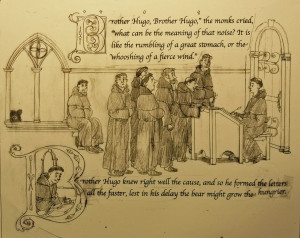 Brother Hugo, Brother Hugo," the monks cried,
"what can be the meaning of that noise? It is
like the rumbling of a great stomach, or the
whooshing of a fierce wind."
Brother Hugo knew right well the cause, and so he formed the letters
all the faster, lest in his delay the bear might grow the hungrier.